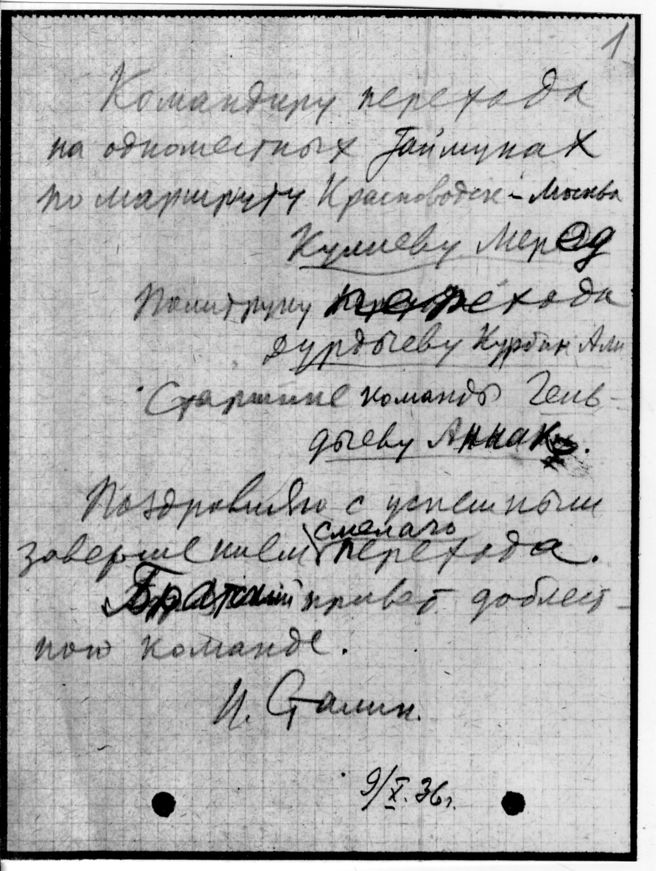 1
Командиру перехода
на одноместных Таймунах
по маршруту Красноводск - Москва
Кулиеву Мерэд
Политруку перехода
Дурдыеву Курбан Али
Старшине команды Гень-
дыеву Аннак.
Поздравляю с успешным
смелого
завершением перехода.
Братский привет доблест-
ной команде.
И. Сталин.
9/X.36г.